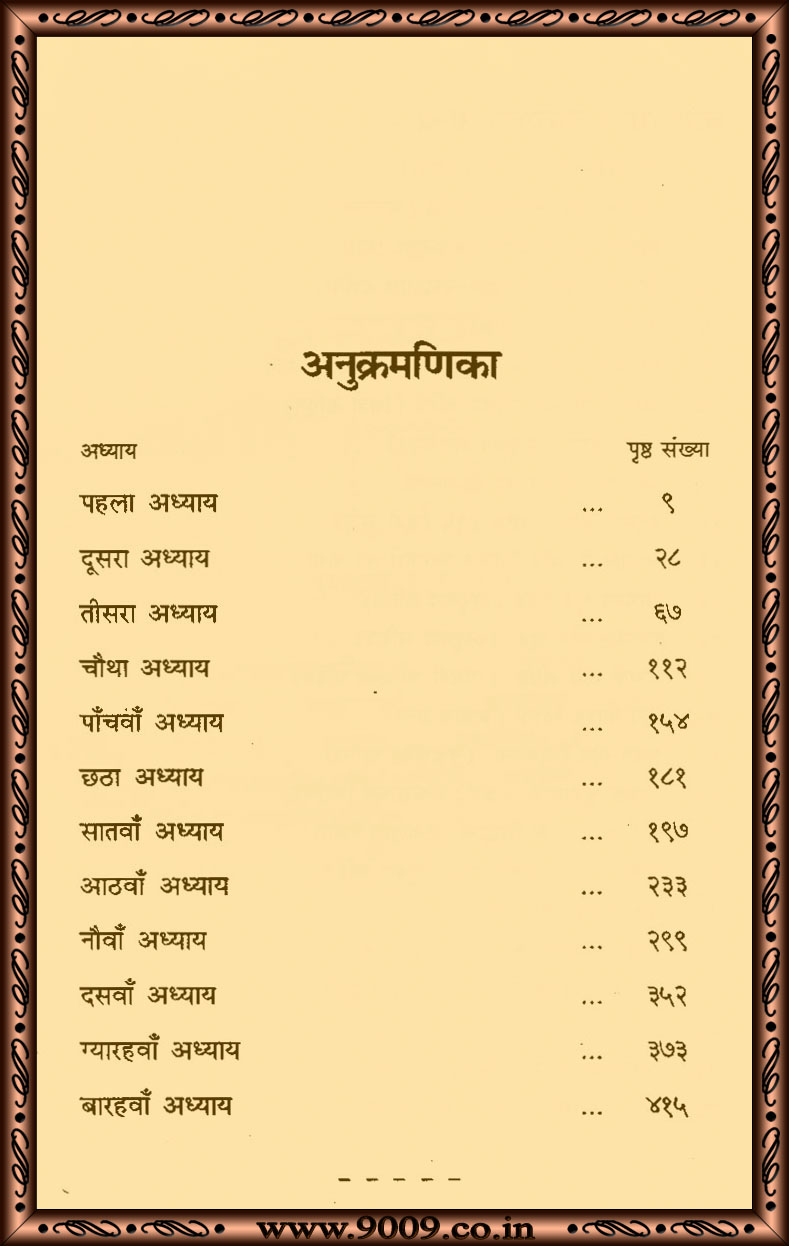 अनुक्रमणिका
अध्याय पृष्ठ संख्या
पहला अध्याय ... ९
दूसरा अध्याय ... २८
तीसरा अध्याय ... ६७
चौथा अध्याय ... ११२
पाँचवाँ अध्याय ... १५४
छठा अध्याय ... १८१
सातवाँ अध्याय ... १९७
आठवाँ अध्याय ... २३३
नौवाँ अध्याय ... २९९
दसवाँ अध्याय ... ३५२
ग्यारहवाँ अध्याय ... ३७३
बारहवाँ अध्याय ... ४१५
- - - - -
www.9009.co.in